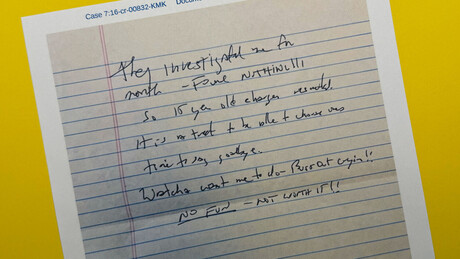 Case 7:16-cr-00832-KMK Docume
They investigated me for
month — FOUND NOTHING!!!
So 15 year old charges resulted.
It is a treat to be able to choose
time to say goodbye.
Watcha want me to do — Burst out cryin!!
NO FUN — NOT WORTH IT!!